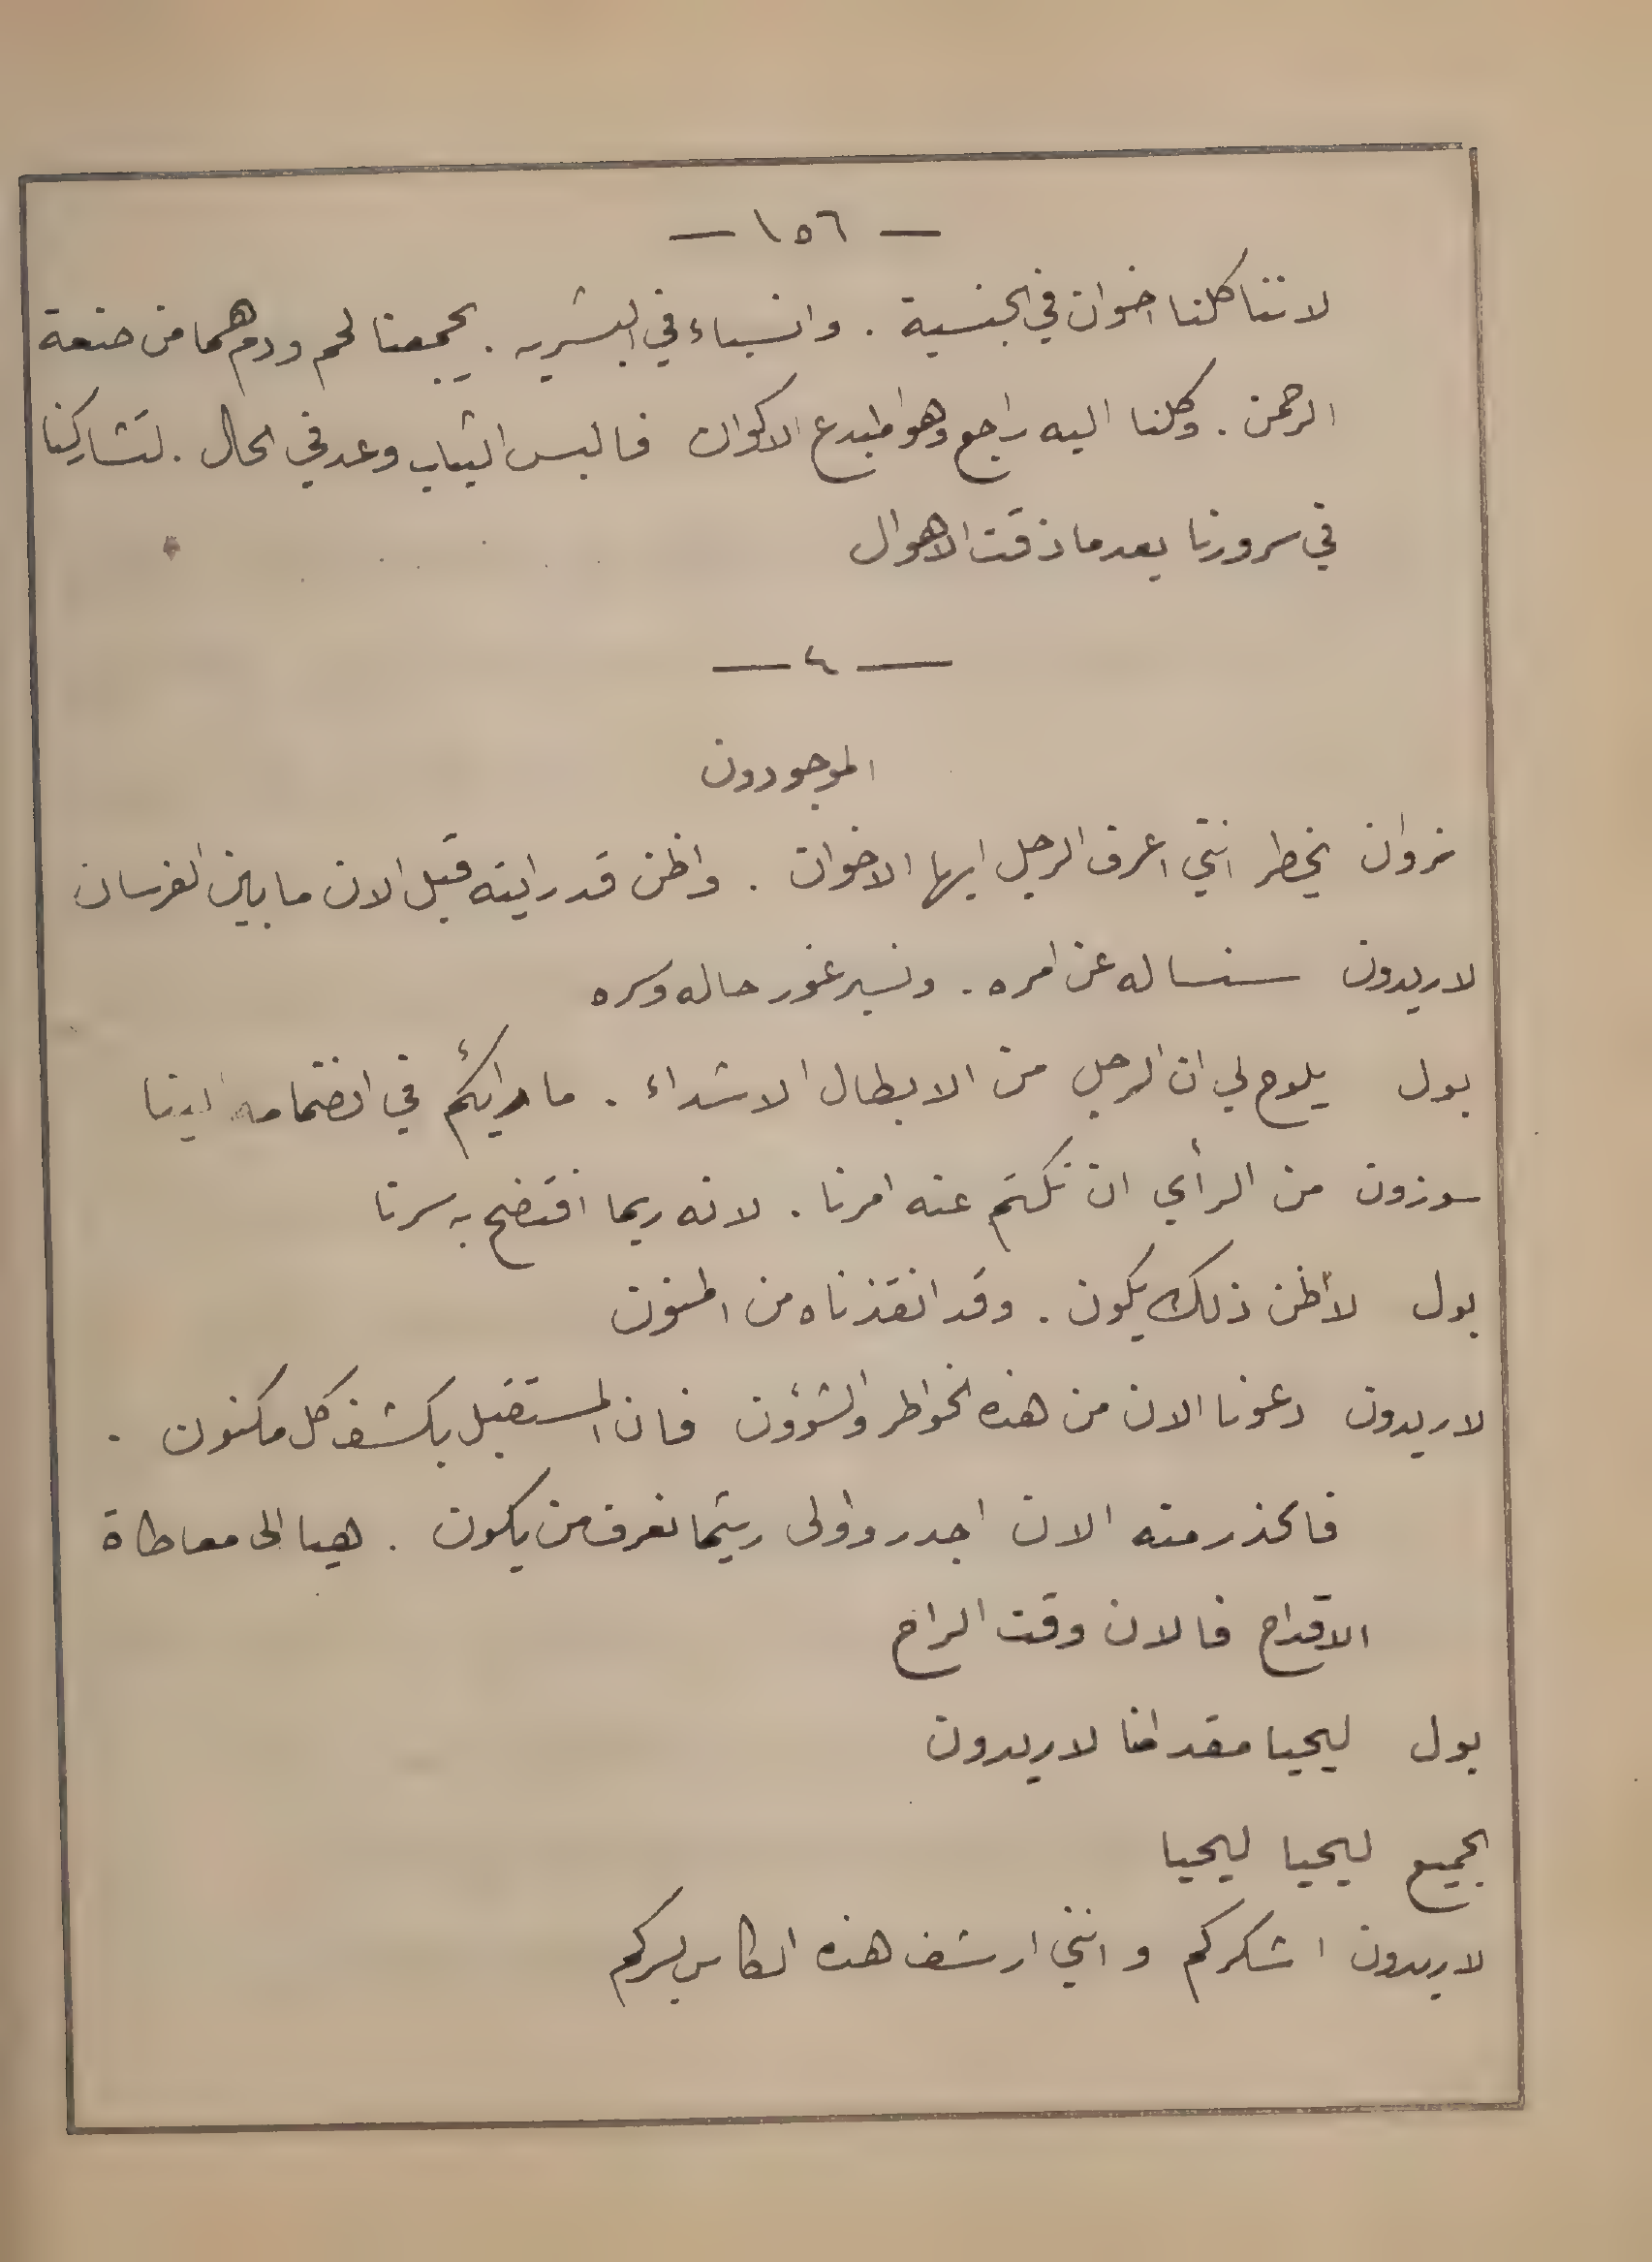 — ١٥٦ —
لاننا كلنا اخوان في الجنسية . وانسباء في البشريه . يجمعنا لحم ودم هما من صنعة
الرحمن . وكلنا اليه راجع وهو المبدع الاكوان فالبس الثياب وعد في الحال . لتشاركنا
في سرورنا بعد ما ذقت الاهوال
— ٤ —
الموجودون
نروان يخطر انني اعرف الرجل ايها الاخوان . واظن قد رايته قبل الان ما بين الفرسان
لاريدون سنساله عن امره . ونسبر غور حاله وسره
بول يلوح لي ان الرجل من الابطال الاشداء . ما رأيكم في انضمامه الينا
سوزون من الرأي ان نكتم عنه امرنا . لانه ربما افتضح به سرنا
بول لا أظن ذلك يكون . وقد انقذناه من المنون
لاريدون دعونا الان من هذه الخواطر والشؤون فان المستقبل يكشف كل مكنون .
فالحذر منه الان اجدر واولى ريثما نعرف من يكون . هيا الى معاطاة
الاقداح فالان وقت الراح
بول ليحيا مقدامنا لاريدون
الجميع ليحيا ليحيا
لاريدون اشكركم وانني ارشف هذه الكاس بسركم